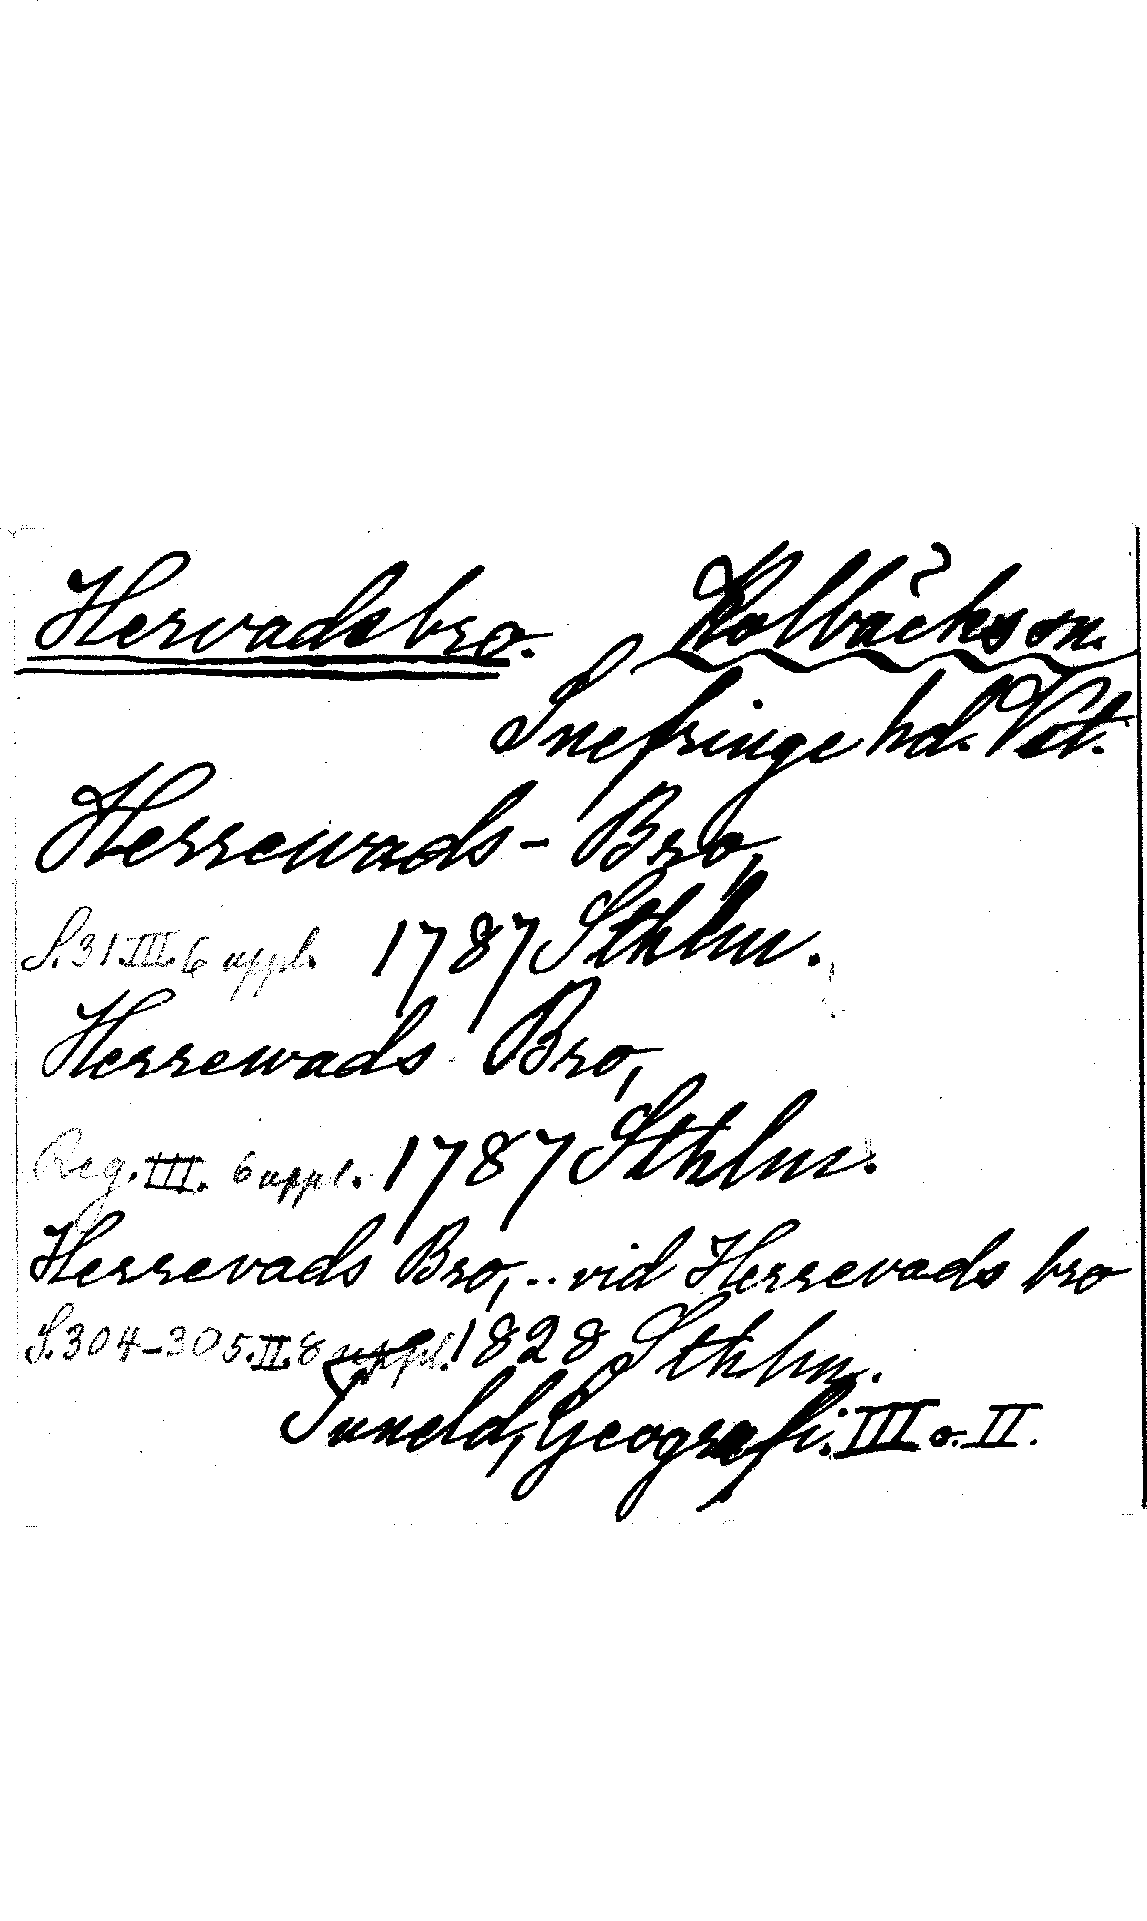 Hervadsbro. Kolbäcks sn.
Snefringe hd. Vst.
Herrewads-Bro,
S.31.III.6 uppl. 1787 Sthlm.
Herrewads Bro,
Reg. III. 6 uppl. 1787 Sthlm.
Herrevads Bro,.. vid Herrevads bro
S.304-305.II.8 uppl. 1828 Sthlm.
Tuneld, Geografi. III o. II.